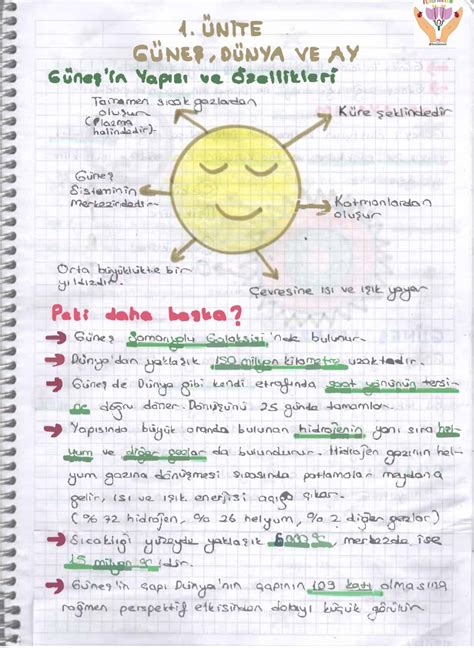 1. ÜNİTE
GÜNEŞ, DÜNYA VE AY
Güneş'in Yapısı ve Özellikleri
Tamamen sıcak gazlardan
oluşur
(plazma
halindedir).
Küre şeklindedir
Güneş
Sisteminin
merkezindedir.
Katmanlardan
oluşur
Orta büyüklükte bir
yıldızdır.
Çevresine ısı ve ışık yayar
Peki daha başka?
→ Güneş Samanyolu Galaksisi'nde bulunur.
→ Dünya'dan yaklaşık 150 milyon kilometre uzaktadır.
→ Güneş de Dünya gibi kendi etrafında saat yönünün tersi-
ne doğru döner. Dönüşünü 25 günde tamamlar.
→ Yapısında büyük oranda bulunan hidrojenin yanı sıra hel-
yum ve diğer gazlar da bulundurur. Hidrojen gazının hel-
yum gazına dönüşmesi sırasında patlamalar meydana
gelir, ısı ve ışık enerjisi açığa çıkar.
(% 72 hidrojen, % 26 helyum, % 2 diğer gazlar)
→ Sıcaklığı yüzeyde yaklaşık 6000 °C, merkezde ise
15 milyon °C'dir.
→ Güneş'in çapı Dünya'nın çapının 109 katı olmasına
rağmen perspektif etkisinden dolayı küçük görünür.